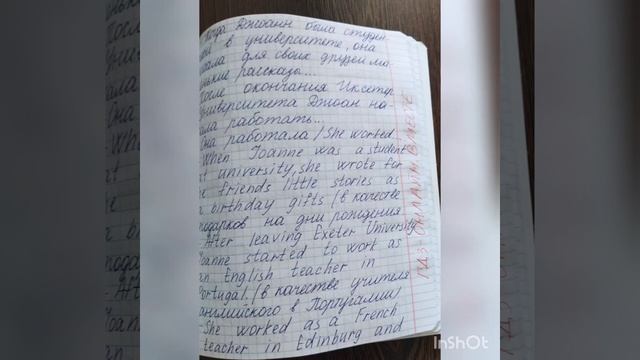 Когда Джоанн была студен-
в университете, она
для своих друзей ма-
рассказы...
После окончания Иксетер
Университета Джоан на-
работать...
Она работала / She worked
- When Joanne was a student
at university, she wrote for
friends little stories as
birthday gifts (в качестве
подарков на дни рождения
- After leaving Exeter University
Joanne started to work as
an English teacher in
Portugal. (в качестве учителя
английского в Португалии)
- She worked as a French
teacher in Edinburg and
ГДЗ-ОНЛАЙН ВМЕСТЕ
InShOt